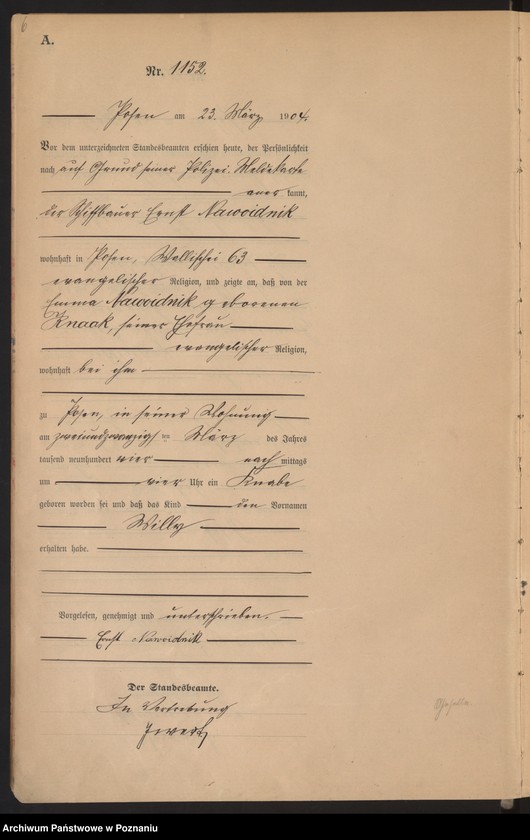 6
A.
Nr. 1152.
Posen am 23. März 1904.
Vor dem unterzeichneten Standesbeamten erschien heute, der Persönlichkeit
nach auf Grund seiner Polizei-Meldekarte
aner kannt,
der Schiffbauer Ernst Nawoidnik
wohnhaft in Posen, Wallischei 63
evangelischer Religion, und zeigte an, daß von der
Emma Nawoidnik geborenen
Knaak, seiner Ehefrau
evangelischer Religion,
wohnhaft bei ihm
zu Posen, in seiner Wohnung
am zweiundzwanzigsten März des Jahres
tausend neunhundert vier nach mittags
um vier Uhr ein Knabe
geboren worden sei und daß das Kind den Vornamen
Willy
erhalten habe.
Vorgelesen, genehmigt und unterschrieben.
Ernst Nawoidnik
Der Standesbeamte.
In Vertretung
Archiwum Państwowe w Poznaniu